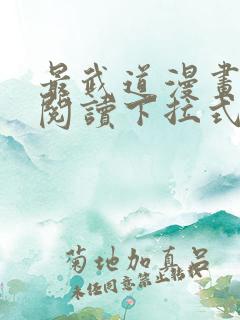 最武道漫畫
閱讀下拉式
菊地加真呂
未经同意禁止转载